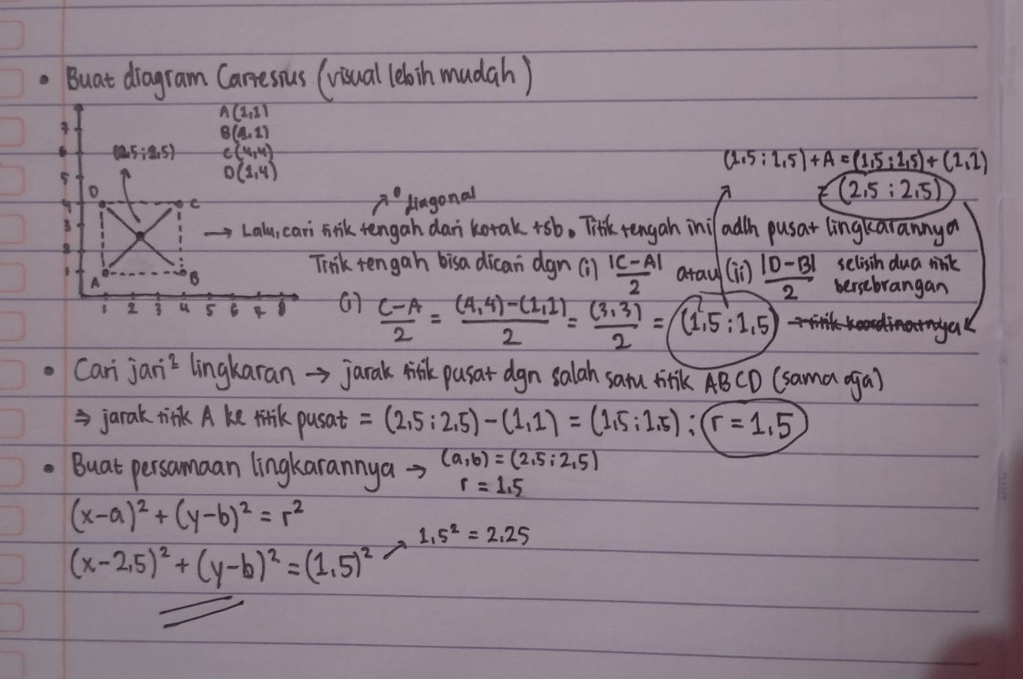 • Buat diagram Cartesius (visual lebih mudah)
A(1,1)
B(4,1)
C(4,4)
D(1,4)
7
6
5
4
3
2
1
(2,5 ; 2,5)
D
C
A
B
1 2 3 4 5 6 7 8
(1,5 ; 1,5) + A = (1,5 ; 1,5) + (1,1)
= (2,5 ; 2,5)
diagonal
→ Lalu, cari titik tengah dari kotak tsb. Titik tengah ini adlh pusat lingkarannya
Titik tengah bisa dicari dgn (i) |C-A|/2 atau (ii) |D-B|/2 selisih dua titik bersebrangan
(i) C-A/2 = (4,4)-(1,1)/2 = (3,3)/2 = (1,5 ; 1,5) → titik koordinatnya
• Cari jari² lingkaran → jarak titik pusat dgn salah satu titik ABCD (sama aja)
⇒ jarak titik A ke titik pusat = (2,5 ; 2,5) - (1,1) = (1,5 ; 1,5) ; r = 1,5
• Buat persamaan lingkarannya → (a,b) = (2,5 ; 2,5)
r = 1,5
(x-a)² + (y-b)² = r²
1,5² = 2,25
(x-2,5)² + (y-b)² = (1,5)²